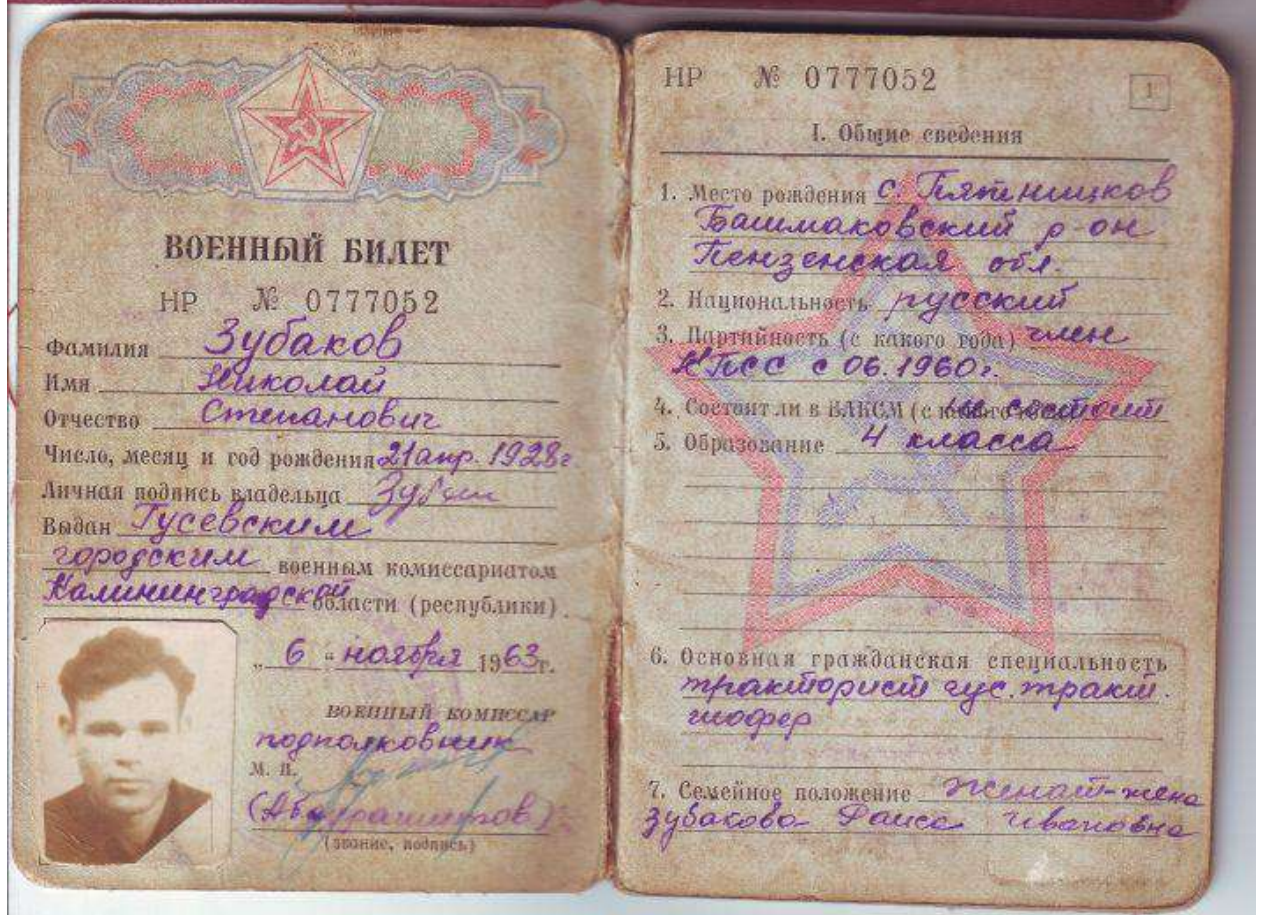 ВОЕННЫЙ БИЛЕТ
НР № 0777052
Фамилия Зубаков
Имя Николай
Отчество Степанович
Число, месяц и год рождения 21 апр. 1928г
Личная подпись владельца
Выдан Гусевским
городским военным комиссариатом
Калининградской области (республики)
„ 6 “ ноября 1963г.
ВОЕННЫЙ КОМИССАР
подполковник
М. П.
(звание, подпись)
НР № 0777052
1
I. Общие сведения
1. Место рождения с. Пятницков
Башмаковский р-он
Пензенская обл.
2. Национальность русский
3. Партийность (с какого года) член
КПСС с 06.1960г.
4. Состоит ли в ВЛКСМ (с какого не состоит
5. Образование 4 класса
6. Основная гражданская специальность
тракторист гус. тракт.
шофер
7. Семейное положение женат-жена
Зубакова Раиса Ивановна